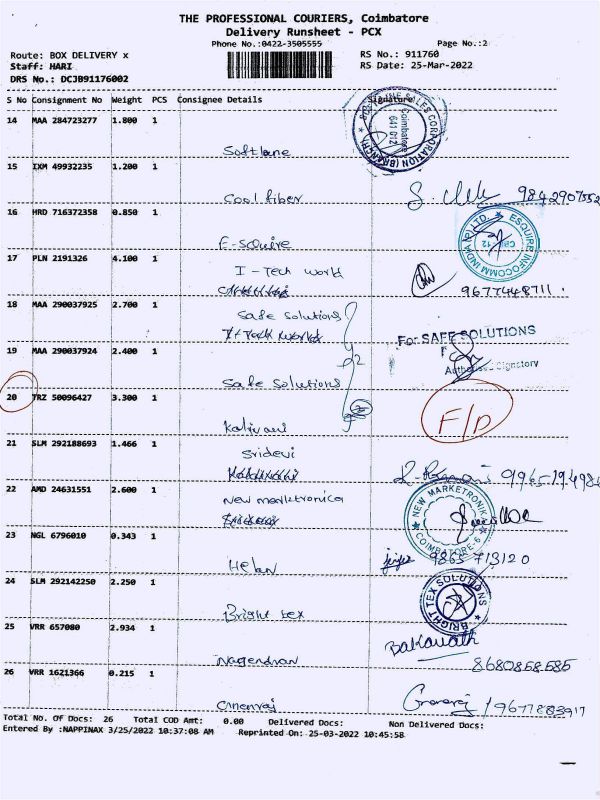 THE PROFESSIONAL COURIERS, Coimbatore
Delivery Runsheet - PCX
Phone No.:0422-3505555 Page No.:2
Route: BOX DELIVERY x RS No.: 911760
Staff: HARI RS Date: 25-Mar-2022
DRS No.: DCJB91176002
S No Consignment No Weight PCS Consignee Details Signature
14 MAA 284723277 1.800 1
SALES CORPORATION (BRANCH)
Coimbatore
641 012
Softlane
15 IXM 49932235 1.200 1
Cool fiber 9842907552
16 HRD 716372358 0.850 1
E-squire
ESQUIRE INFOCOMM INDIA (P) LTD
CBE-12
17 PLN 2191326 4.100 1
I-Tech world
9677448711
18 MAA 290037925 2.700 1
Safe solutions
For SAFE SOLUTIONS
19 MAA 290037924 2.400 1
Authorised Signatory
Safe solutions
20 TRZ 50096427 3.300 1
F/D
Kalivani
21 SLM 292188693 1.466 1
Sridevi
22 AMD 24631551 2.600 1
New marktronica
NEW MARKETRONIK
COIMBATORE-6
23 NGL 6796010 0.343 1
9865713120
Helan
24 SLM 292142250 2.250 1
BRIGHT TEX SOLUTIONS
Bright tex
25 VRR 657080 2.934 1
Nagendran
8680858585
26 VRR 1621366 0.215 1
9677883917
Total No. Of Docs: 26 Total COD Amt: 0.00 Delivered Docs: Non Delivered Docs:
Entered By :NAPPINAX 3/25/2022 10:37:08 AM Reprinted On: 25-03-2022 10:45:58